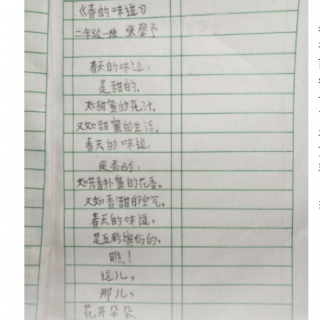 《春的味道》
二年级一班
春天的味道,
是甜的,
如甜蜜的花汁,
又如甜蜜的生活。
春天的味道,
是香的,
如芳香扑鼻的花香。
又如香甜的空气。
春天的味道,
是五彩缤纷的,
瞧!
这儿、
那儿、
花开朵朵